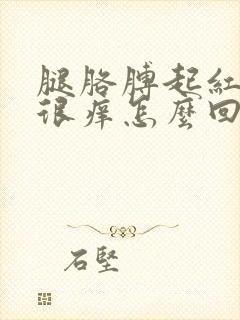 腿胳膊起紅
很痒怎麼回
石堅